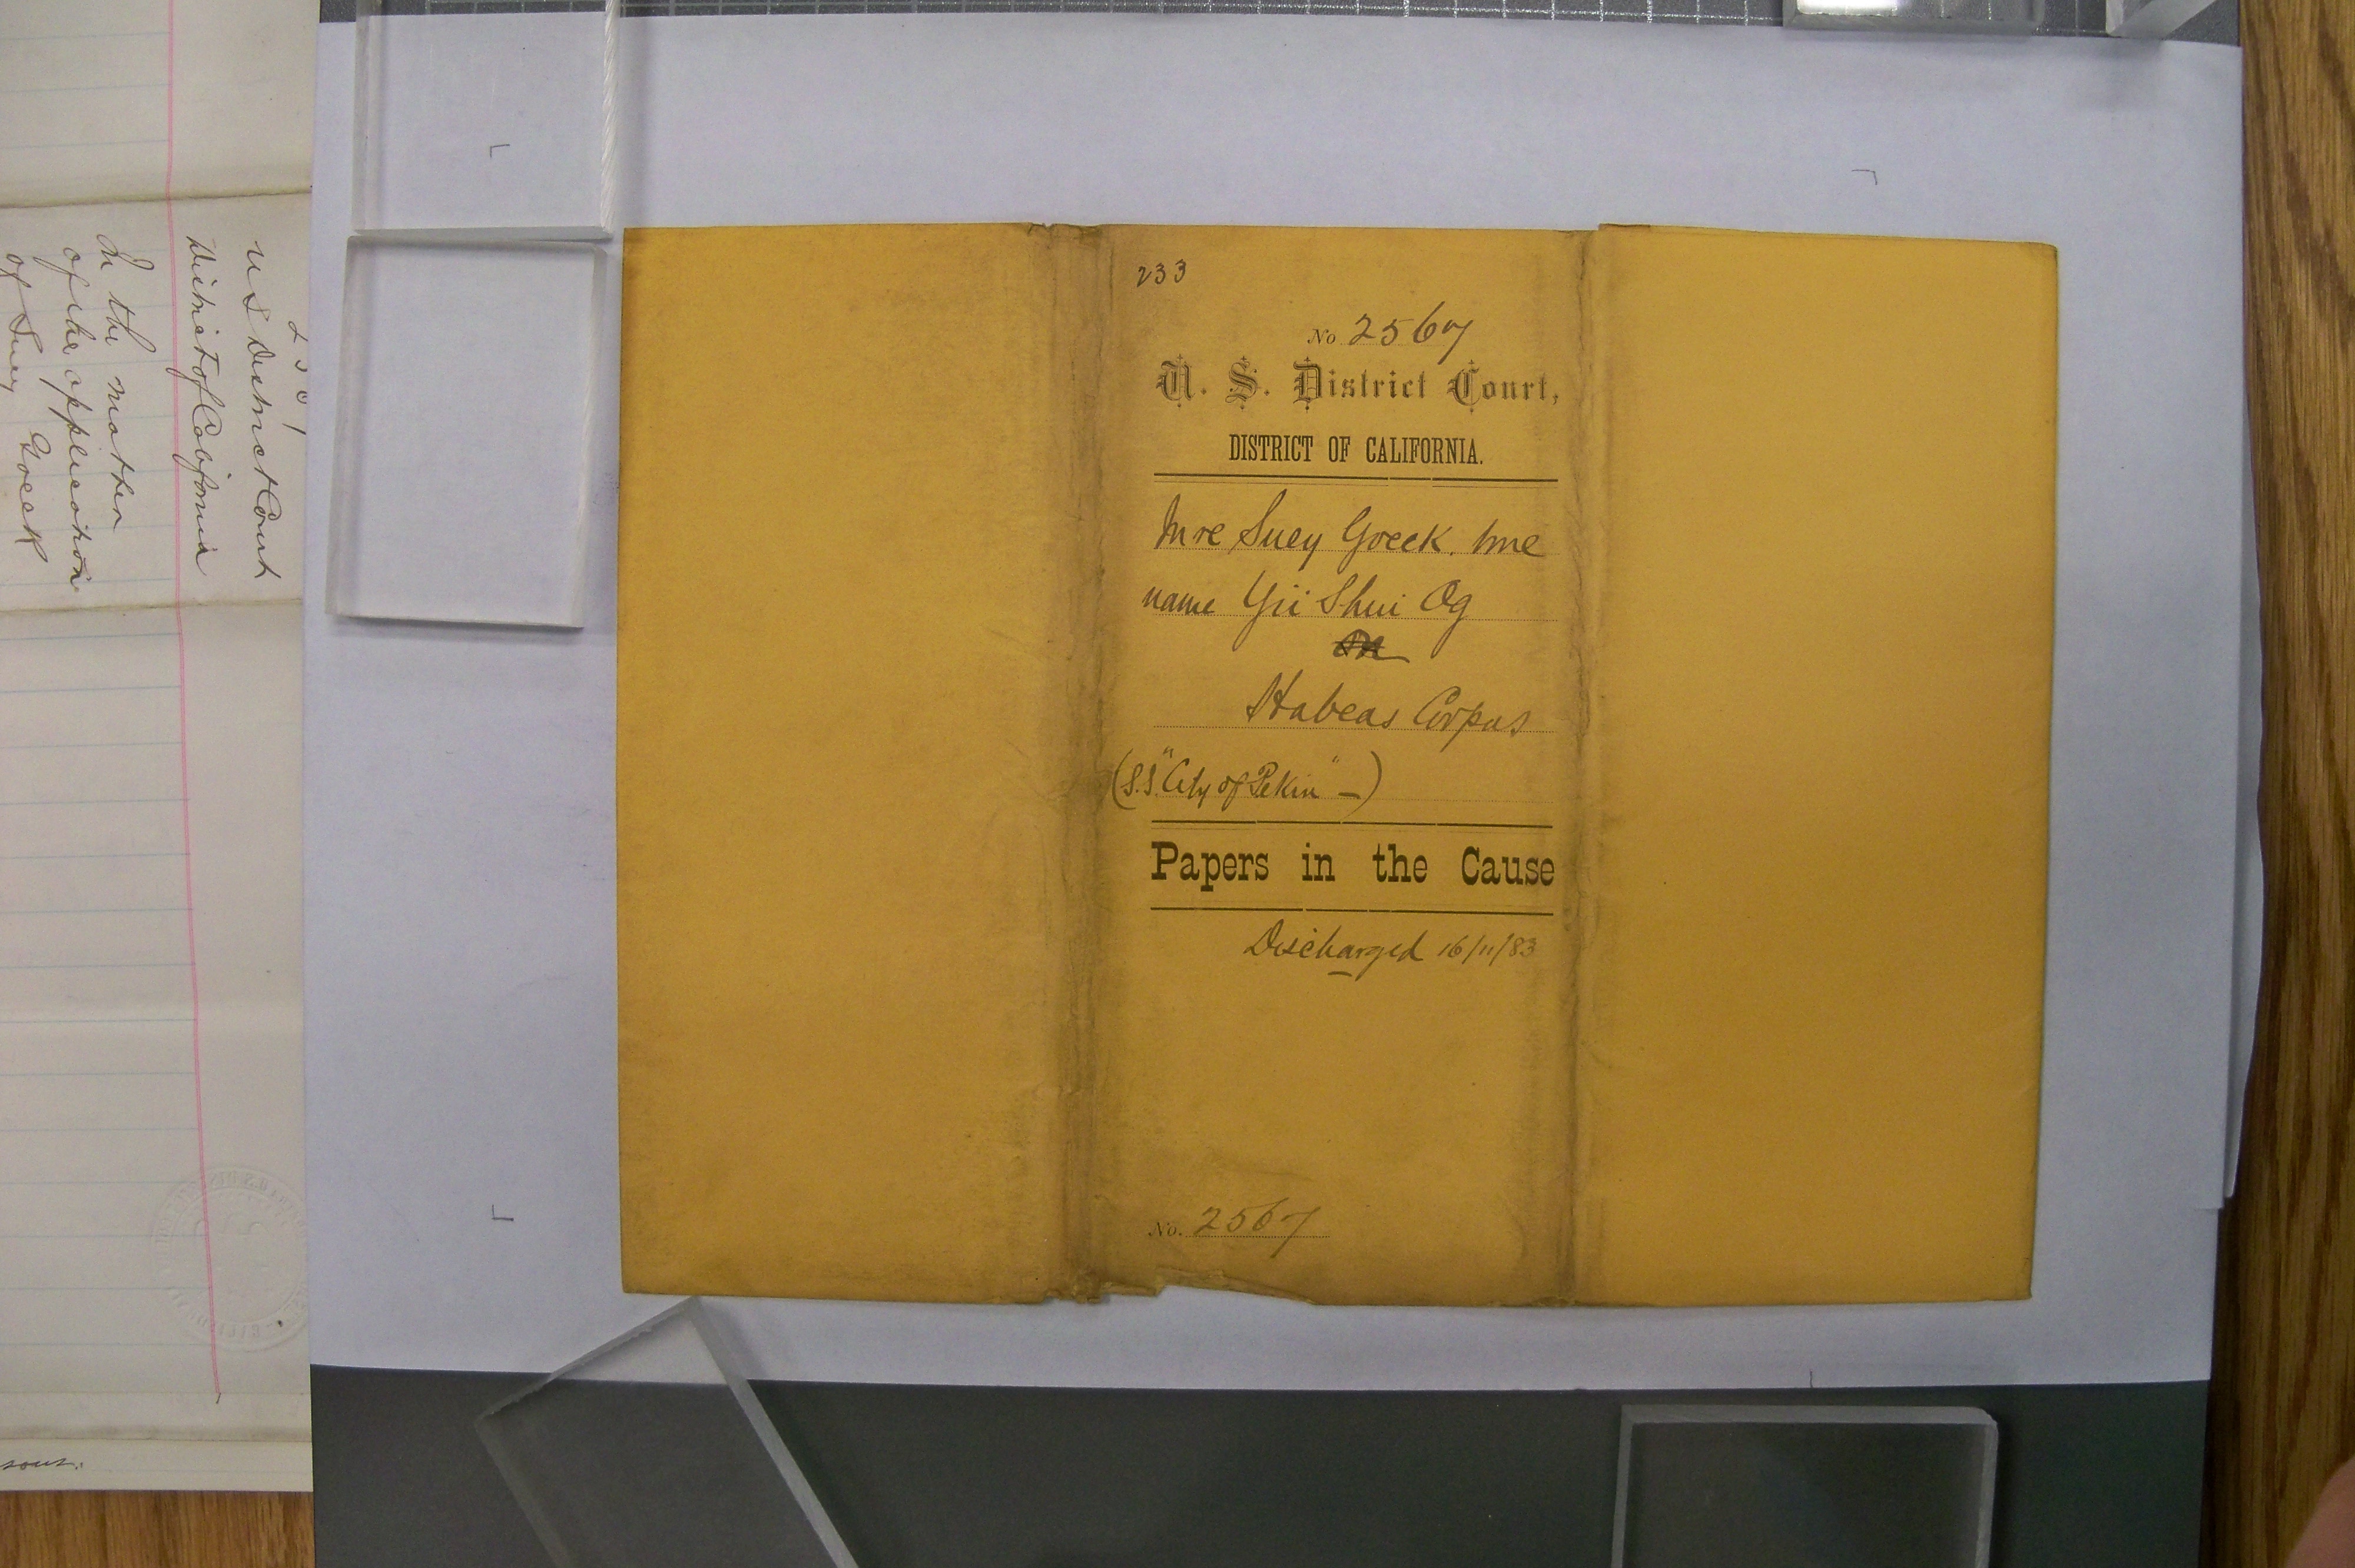 233
No 2567
U. S. District Court,
DISTRICT OF CALIFORNIA.
In re Suey Goeek. true
name Yii Shui Og
Habeas Corpus
(S.S. "City of Pekin" —)
Papers in the Cause
Discharged 16/11/83
No. 2567
U S District Court
District of California
In the matter
of the application
of Suey Goeek